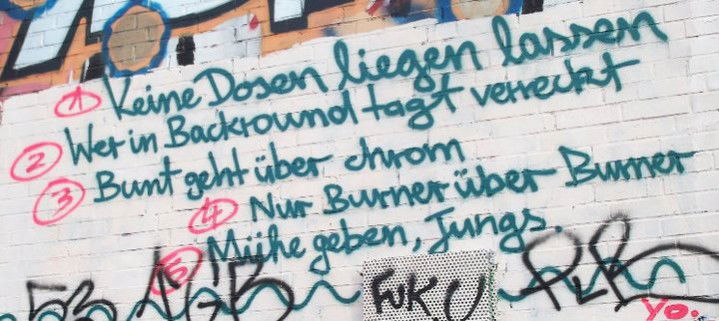 1 Keine Dosen liegen lassen
2 Wer in Backround tagt verreckt
3 Bunt geht über chrom
4 Nur Burner über Burner
5 Mühe geben, Jungs.
53 AGB FUK U PLR
yo.